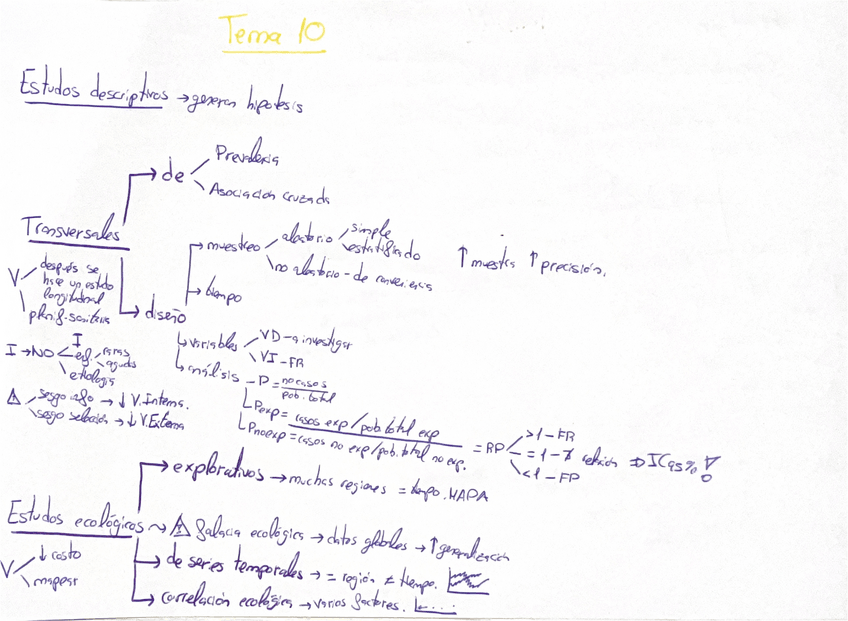 Tema 10
Estudos descriptivos → generan hipotesis
→ de
Prevalencia
Asociación cruzada
Transversales
V
después se
hace un estudo
longitudinal
planif. sanitaria
I → NO
I
enf.
raras
agudas
etiología
⚠ sesgo info → ↓ V.Interna.
sesgo selección → ↓ V.Externa
→ diseño
→ muestreo
aleatorio
simple
estratificado
no aleatorio - de conveniencia
↑ muestra ↑ precisión.
→ tiempo
→ variables
VD - a investigar
VI - FR
→ análisis - P = no casos / pob. total
Pexp = casos exp / pob. total exp
Pnoexp = casos no exp / pob. total no exp.
= RP
>1 - FR
= 1 - relación ⇒ IC95%
<1 - FP
Estudos ecológicos ⚠ falacia ecológica → datos globales → ↑ generalización
V
↓ costo
mapear
→ explorativos → muchas regiones = tiempo. MAPA
→ de series temporales → = región ≠ tiempo.
→ correlación ecológica → varios factores.